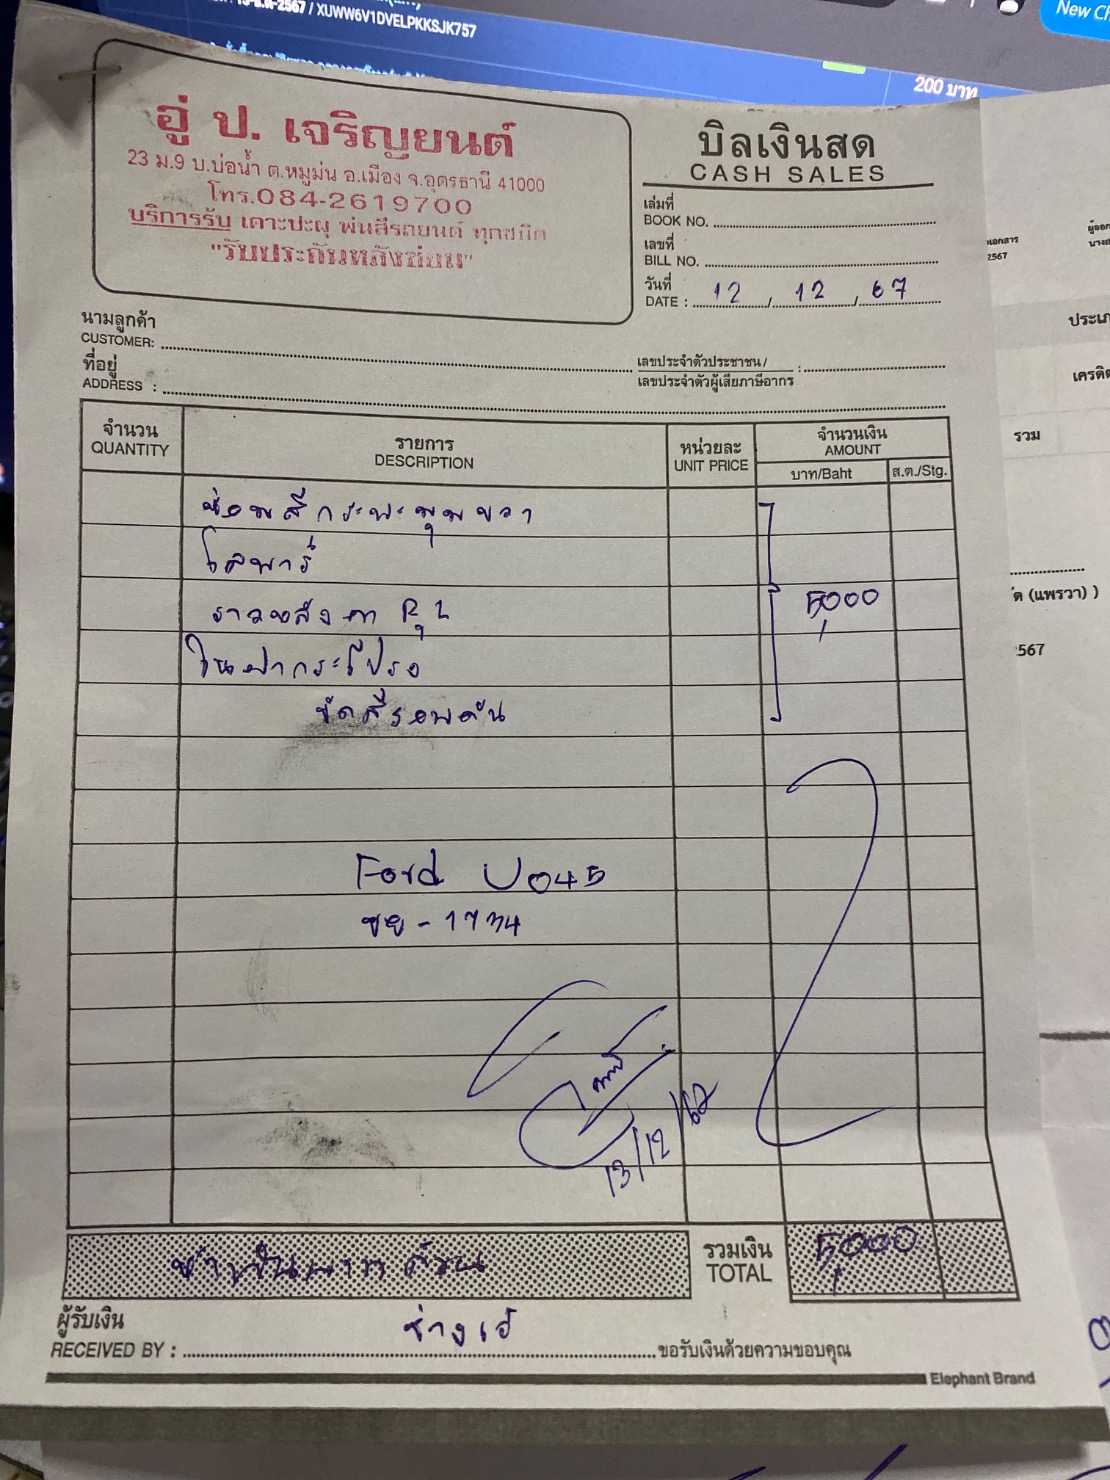 -2567 / XUWW6V1DVELPKKSJK757
New Ch
200 บาท
อู่ ป. เจริญยนต์
23 ม.9 บ.บ่อน้ำ ต.หมูม่น อ.เมือง จ.อุดรธานี 41000
โทร.084-2619700
บริการรับ เคาะปะผุ พ่นสีรถยนต์ ทุกชนิด
"รับประกันหลังซ่อม"
บิลเงินสด
CASH SALES
เล่มที่
BOOK NO.
เลขที่
BILL NO.
วันที่
DATE : 12 / 12 / 67
นามลูกค้า
CUSTOMER:
ที่อยู่
ADDRESS :
เลขประจำตัวประชาชน /
เลขประจำตัวผู้เสียภาษีอากร :
จำนวน
QUANTITY
รายการ
DESCRIPTION
หน่วยละ
UNIT PRICE
จำนวนเงิน
AMOUNT
บาท/Baht
ส.ต./Stg.
ซ่อมสีกระบะมุมขวา
โลพาร์
ราวหลังคา
5,000
ขัดสีรอบคัน
Ford U045
ขย - 1734
13/12/67
ห้าพันบาทถ้วน
รวมเงิน
TOTAL
5,000
ผู้รับเงิน
RECEIVED BY : ช่างเอ๋ ขอรับเงินด้วยความขอบคุณ
Elephant Brand
เอกสาร
2567
ประเภ
เครดิต
รวม
ัด (แพรวา) )
2567